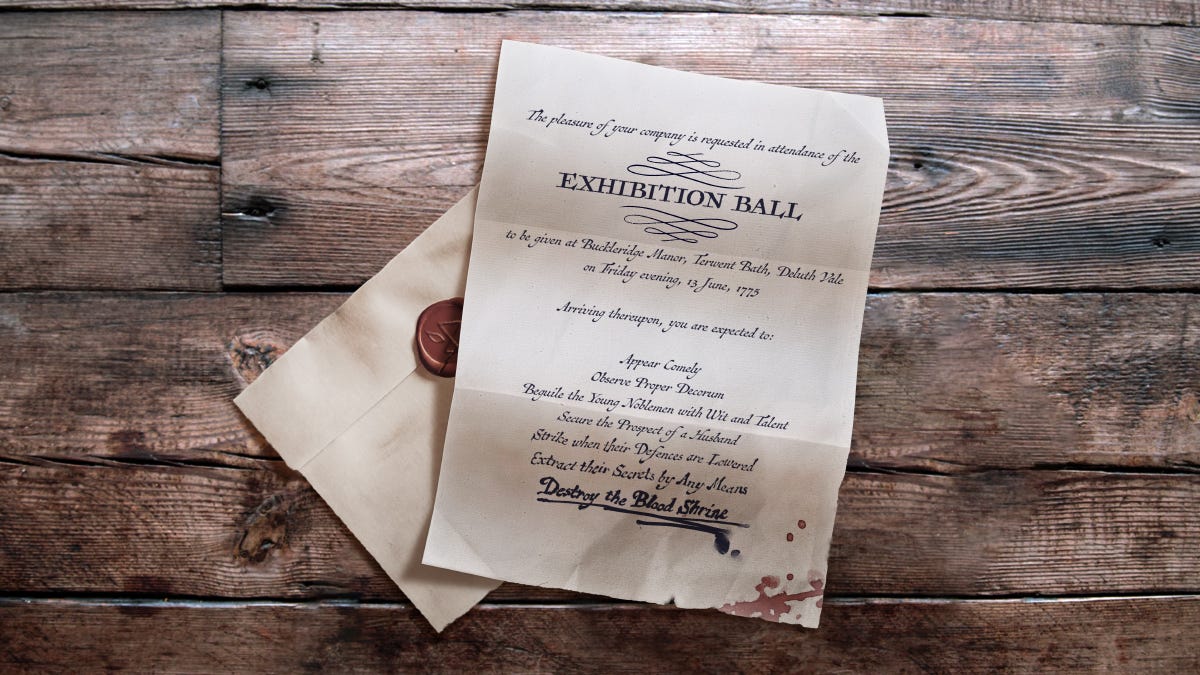 The pleasure of your company is requested in attendance of the
EXHIBITION BALL
to be given at Buckleridge Manor, Terwent Bath, Deluth Vale
on Friday evening, 13 June, 1775
Arriving thereupon, you are expected to:
Appear Comely
Observe Proper Decorum
Beguile the Young Noblemen with Wit and Talent
Secure the Prospect of a Husband
Strike when their Defences are Lowered
Extract their Secrets by Any Means
Destroy the Blood Shrine